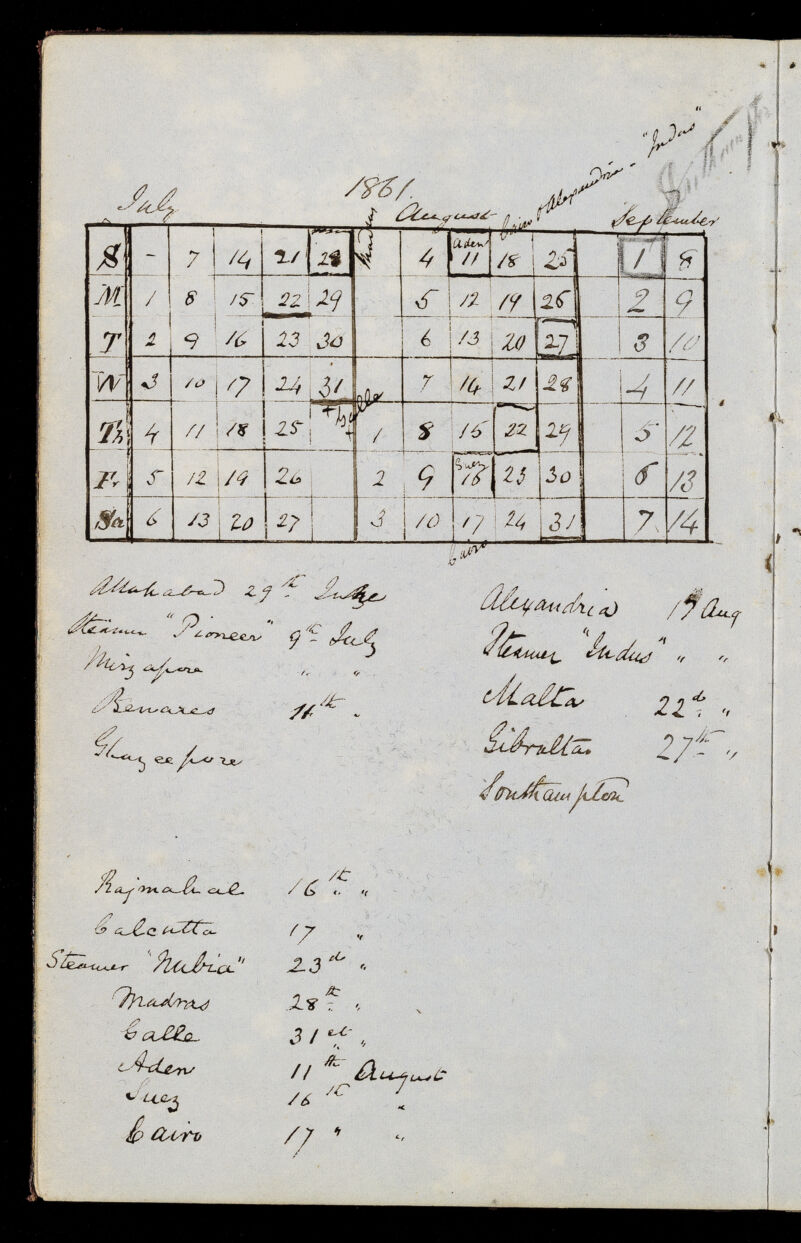 1861.
July August September
Cairo & Alexandria - "Indus"
S - 7 14 21 28 4 11 18 25 1 8
Aden
M 1 8 15 22 29 5 12 19 26 2 9
T 2 9 16 23 30 6 13 20 27 3 10
W 3 10 17 24 31 7 14 21 28 4 11
Galle
Th 4 11 18 25 1 8 15 22 29 5 12
F. 5 12 19 26 2 9 16 23 30 6 13
Suez
Sa 6 13 20 27 3 10 17 24 31 7 14
Cairo
Allahabad 29th June
Steamer "Pioneer" 9th July
Mirzapore " "
Benares 11th "
Ghazeepore
Rajmahal 16th "
Calcutta 17 "
Steamer "Nubia" 23d "
Madras 28th "
Galle 31st "
Aden 11th August
Suez 16th "
Cairo 17 " "
Alexandria Aug
Steamer "Indus" " "
Malta 22d "
Gibraltar 27th "
Southampton